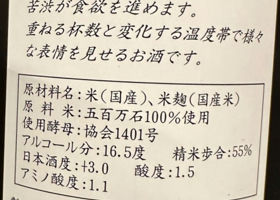 苦渋が食欲を進めます。
重ねる杯数と変化する温度帯で様々
な表情を見せるお酒です。
原材料名：米（国産）、米麹（国産米）
原料 米：五百万石100％使用
使用酵母：協会1401号
アルコール分：16.5度 精米歩合：55％
日本酒度：+3.0 酸度：1.5
アミノ酸度：1.1